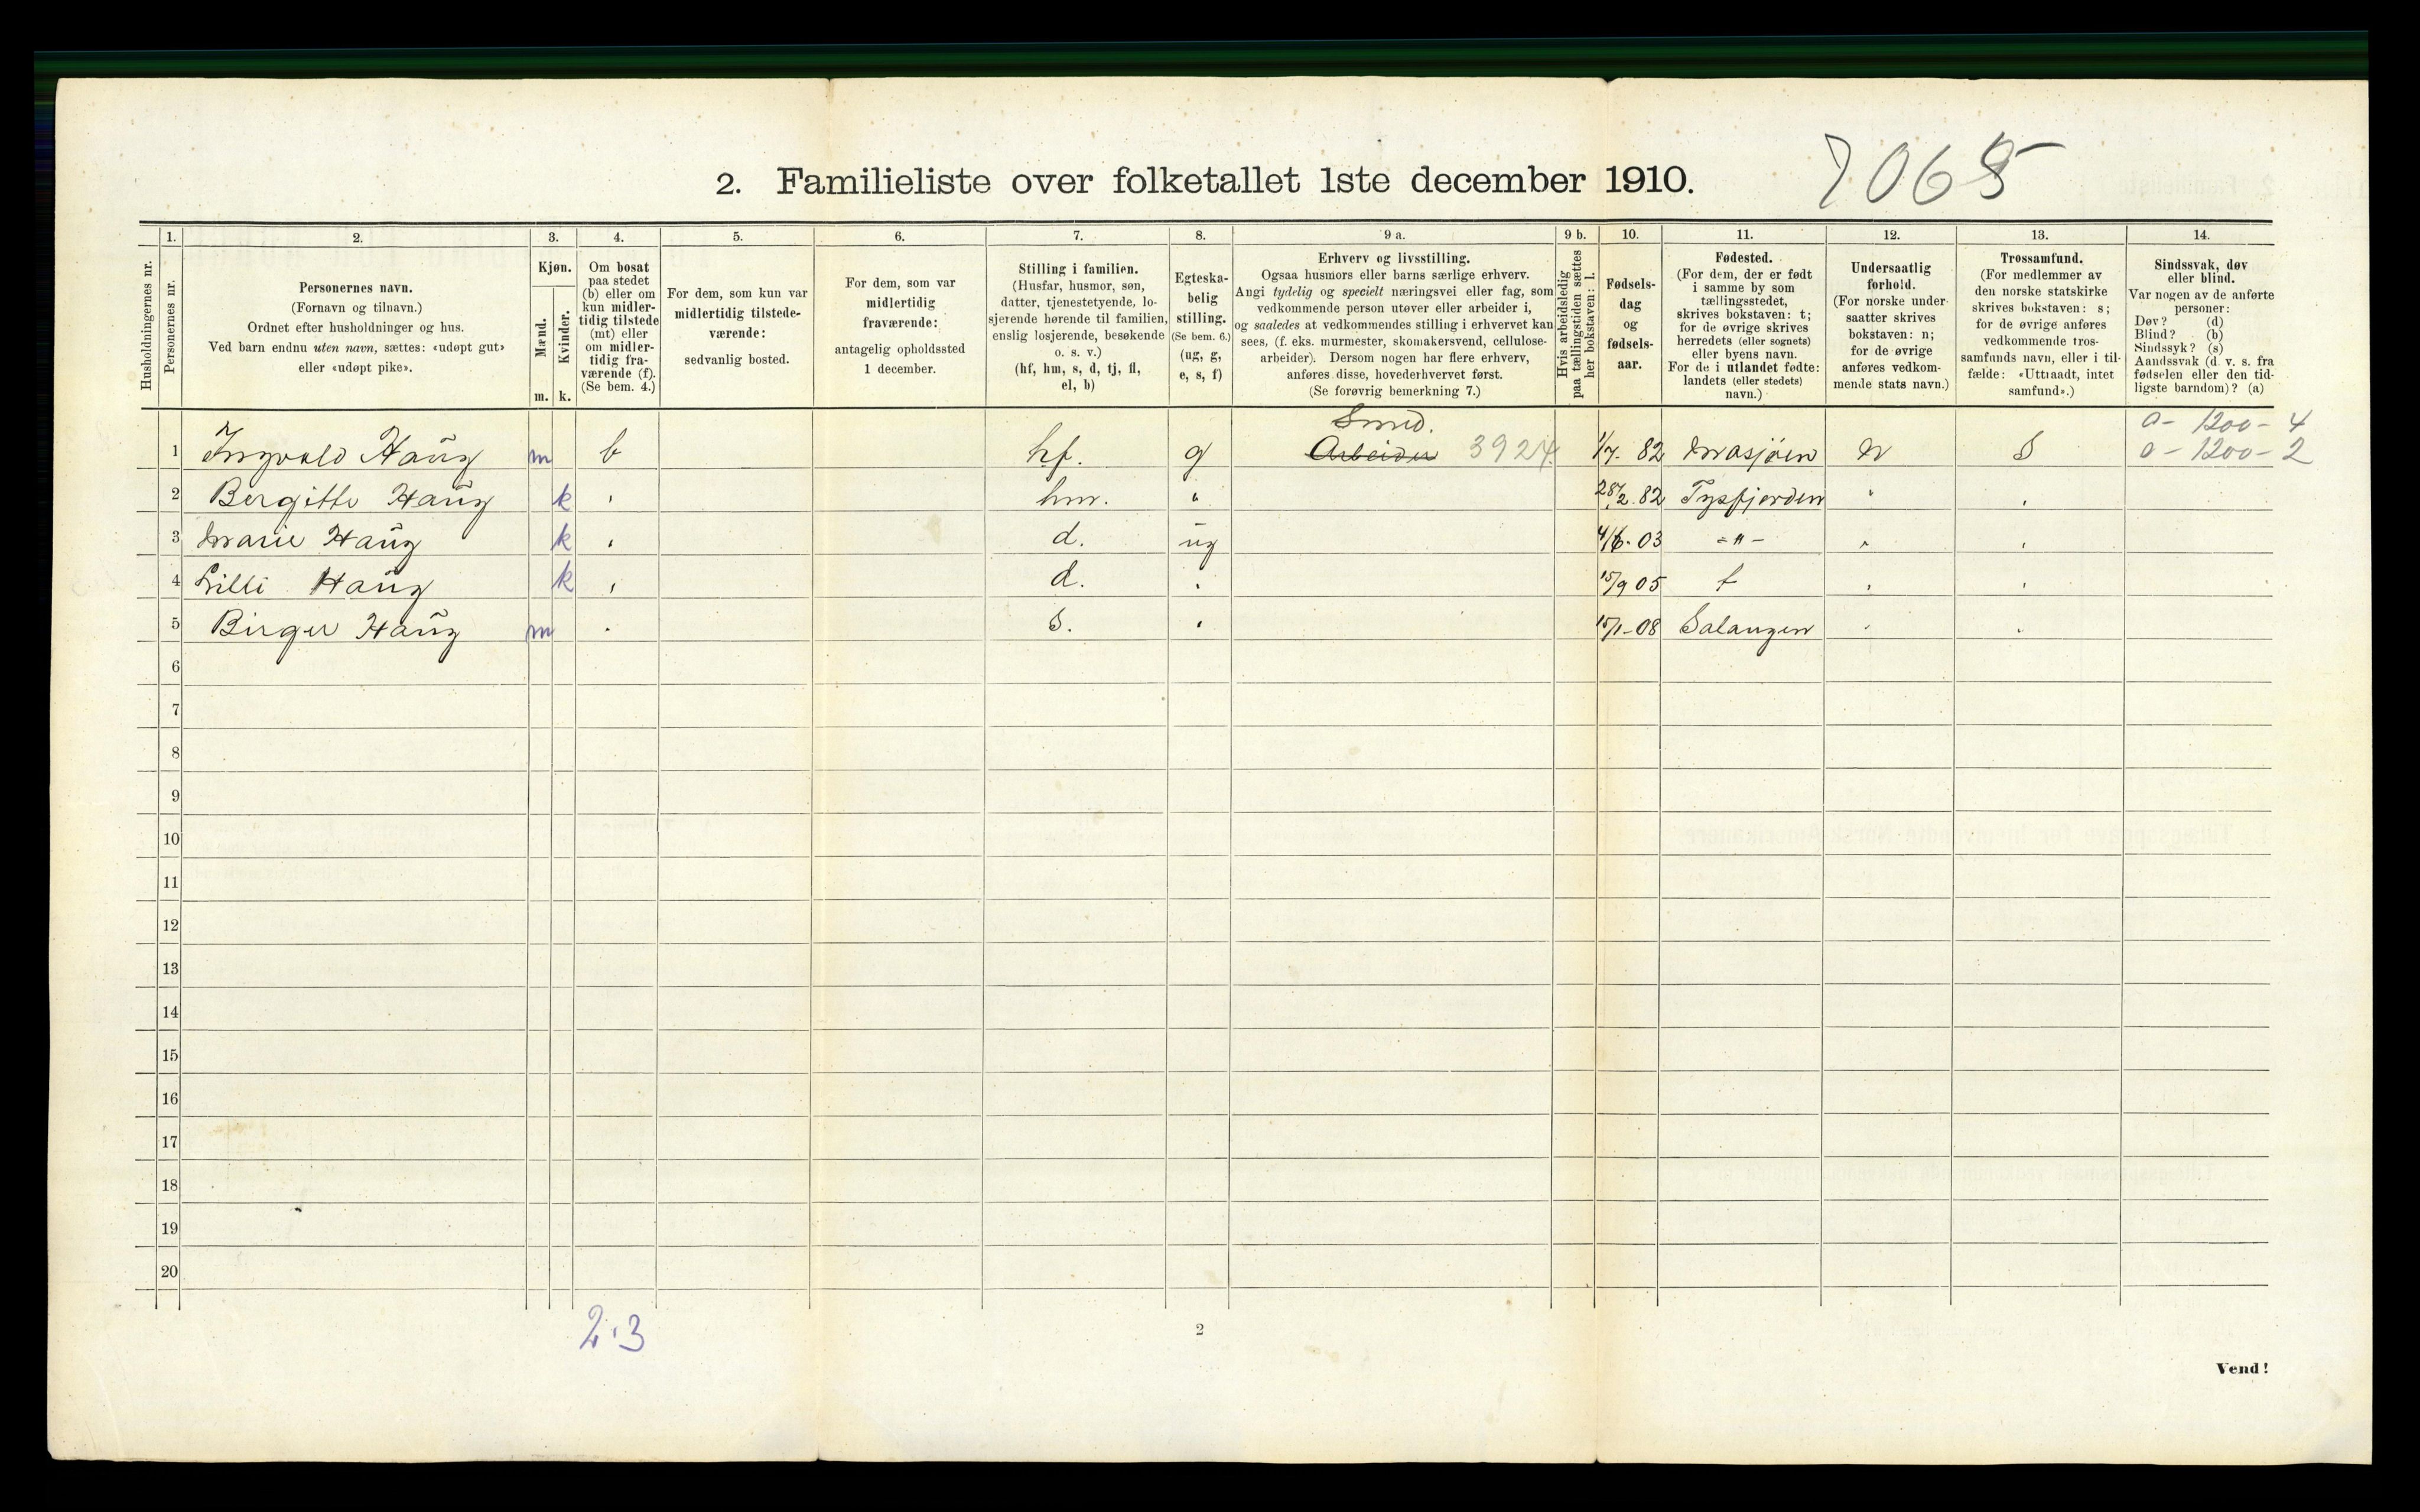 7065
2. Familieliste over folketallet 1ste december 1910.
Husholdningernes nr.
1.
Personernes nr.
2.
Personernes navn.
(Fornavn og tilnavn.)
Ordnet efter husholdninger og hus.
Ved barn endnu uten navn, sættes: «udøpt gut»
eller «udøpt pike».
3.
Kjøn.
Mænd.
Kvinder.
m. k.
4.
Om bosat
paa stedet
(b) eller om
kun midler-
tidig tilstede
(mt) eller
om midler-
tidig fra-
værende (f).
(Se bem. 4.)
5.
For dem, som kun var
midlertidig tilstede-
værende:
sedvanlig bosted.
6.
For dem, som var
midlertidig
fraværende:
antagelig opholdssted
1 december.
7.
Stilling i familien.
(Husfar, husmor, søn,
datter, tjenestetyende, lo-
sjerende hørende til familien,
enslig losjerende, besøkende
o. s. v.)
(hf, hm, s, d, tj, fl,
el, b)
8.
Egteska-
belig
stilling.
(Se bem. 6.)
(ug, g,
e, s, f)
9 a.
Erhverv og livsstilling.
Ogsaa husmors eller barns særlige erhverv.
Angi tydelig og specielt næringsvei eller fag, som
vedkommende person utøver eller arbeider i,
og saaledes at vedkommendes stilling i erhvervet kan
sees, (f. eks. murmester, skomakersvend, cellulose-
arbeider). Dersom nogen har flere erhverv,
anføres disse, hovederhvervet først.
(Se forøvrig bemerkning 7.)
9 b.
Hvis arbeidsledig
paa tællingstiden sættes
her bokstaven: l.
10.
Fødsels-
dag
og
fødsels-
aar.
11.
Fødested.
(For dem, der er født
i samme by som
tællingsstedet,
skrives bokstaven: t;
for de øvrige skrives
herredets (eller sognets)
eller byens navn.
For de i utlandet fødte:
landets (eller stedets)
navn.)
12.
Undersaatlig
forhold.
(For norske under-
saatter skrives
bokstaven: n;
for de øvrige
anføres vedkom-
mende stats navn.)
13.
Trossamfund.
(For medlemmer av
den norske statskirke
skrives bokstaven: s;
for de øvrige anføres
vedkommende tros-
samfunds navn, eller i til-
fælde: «Uttraadt, intet
samfund».)
14.
Sindssvak, døv
eller blind.
Var nogen av de anførte
personer:
Døv? (d)
Blind? (b)
Sindssyk? (s)
Aandssvak (d. v. s. fra
fødselen eller den tid-
ligste barndom)? (a)
Smed. 0 - 1200 - 4
1 Ingvald Haug m b hf. g Arbeider 3924 1/7. 82 Mosjøen N S 0 - 1200 - 2
2 Bergitte Haug k " hm. " 28/2. 82 Tysfjorden " "
3 Marie Haug k " d. ug 4/6. 03 - " - " "
4 Lilli Haug k " d. " 15/9 05 t " "
5 Birger Haug m " s. " 15/1-08 Salangen " "
6
7
8
9
10
11
12
13
14
15
16
17
18
19
20
2.3
2
Vend!